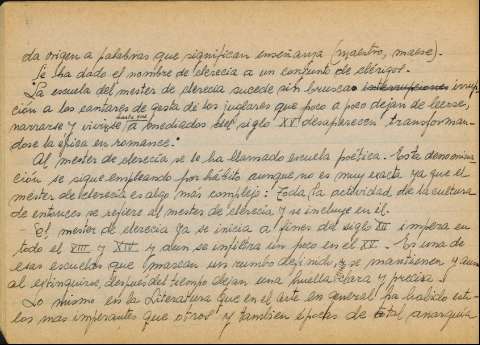 da origen a palabras que significan enseñanza (maestro, maese).
Se ha dado el nombre de clerecía a un conjunto de clérigos.
La escuela del mester de clerecía sucede sin brusca irrup-
ción a los cantares de gesta de los juglares que poco a poco dejan de leerse,
narrarse y vivirse hasta que a mediados del siglo XV desaparecen transforman-
dose la épica en romance.
Al mester de clerecía se le ha llamado escuela poética. Esta denomina-
ción se sigue empleando por hábito aunque no es muy exacta ya que el
mester de clerecía es algo más complejo: Toda la actividad de la cultura
de entonces se refiere al mester de clerecía y se incluye en él.
- El mester de clerecía ya se inicia a fines del siglo XII impera en
todo el XIII y XIV y aun se infiltra un poco en el XV. Es una de
esas escuelas que marcan un rumbo definido, y se mantienen y aun
al extinguirse, después del tiempo dejan una huella clara y precisa.
Lo mismo en la Literatura que en el arte en general ha habido esti-
los mas imperantes que otros y tambien épocas de total anarquía